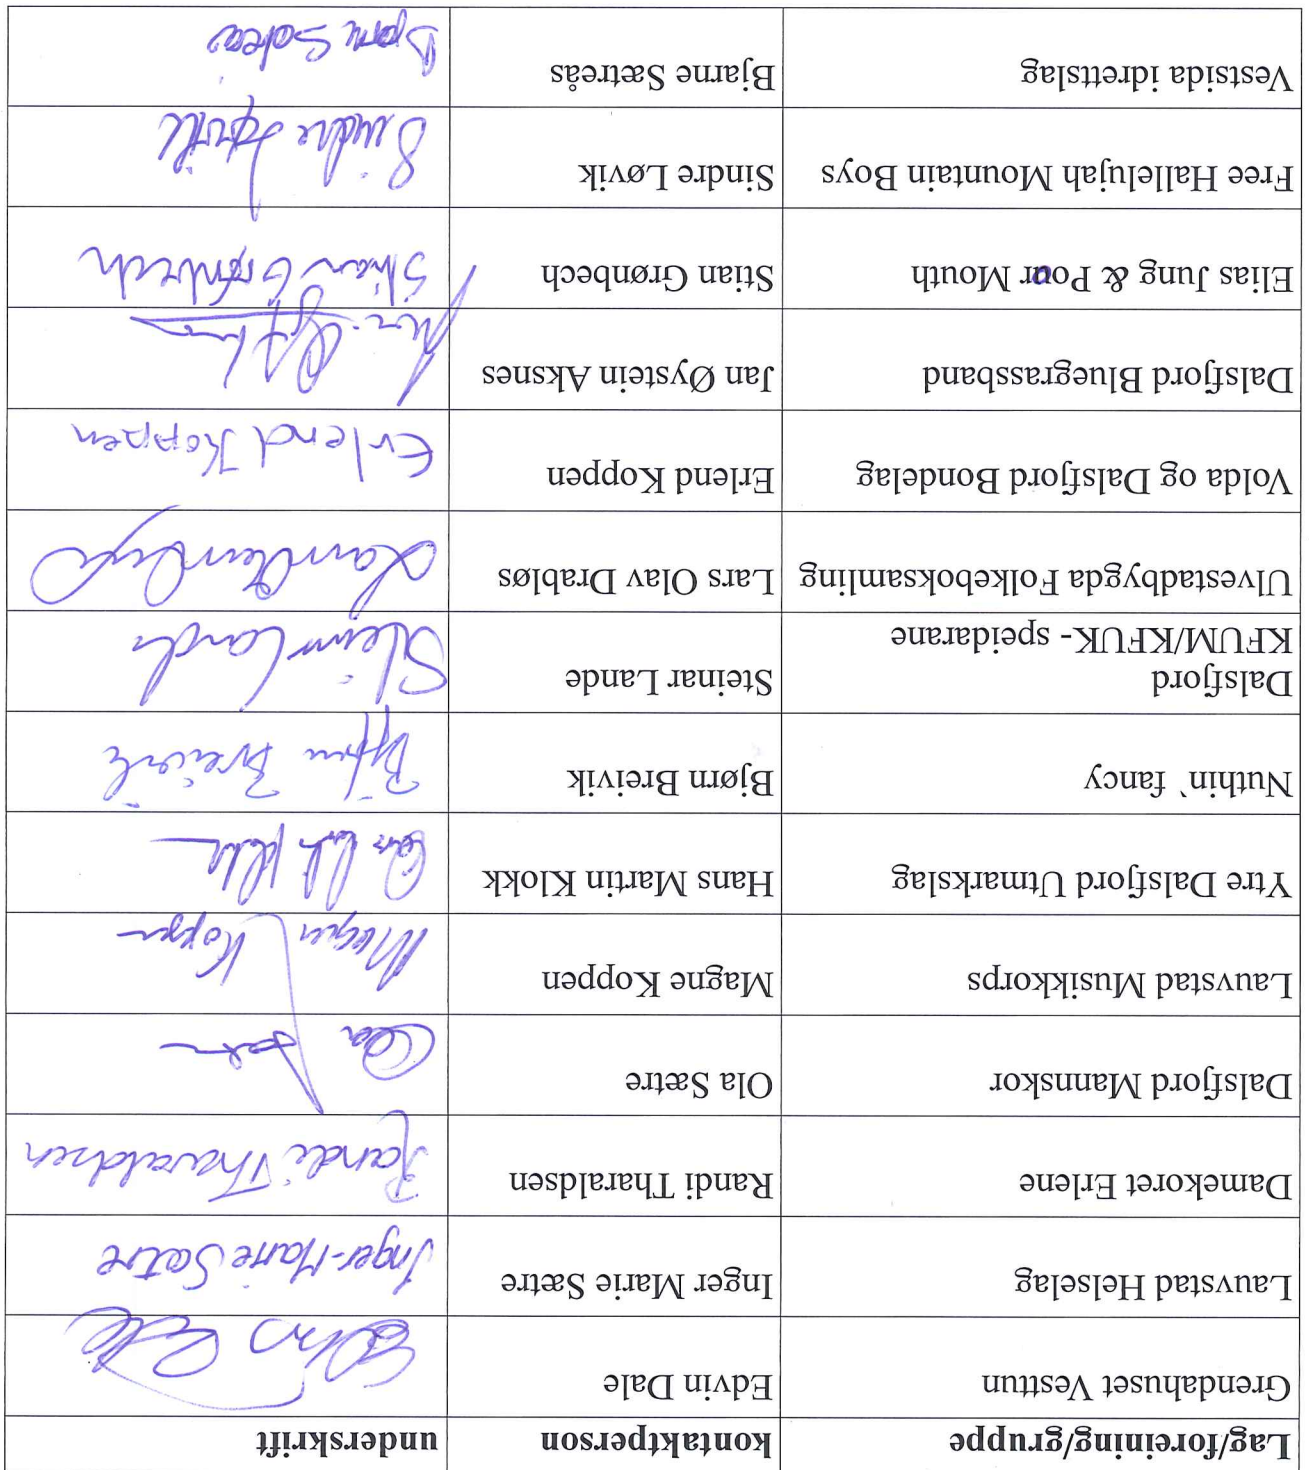 Lag/foreining/gruppe kontaktperson underskrift
Grendahuset Vesttun Edvin Dale
Lauvstad Helselag Inger Marie Sætre Inger-Marie Sætre
Damekoret Erlene Randi Tharaldsen Randi Tharaldsen
Dalsfjord Mannskor Ola Sætre Ola Sætre
Lauvstad Musikkorps Magne Koppen Magne Koppen
Ytre Dalsfjord Utmarkslag Hans Martin Klokk
Nuthin` fancy Bjørn Breivik Bjørn Breivik
Dalsfjord
KFUM/KFUK- speidarane Steinar Lande Steinar Lande
Ulvestadbygda Folkeboksamling Lars Olav Drabløs
Volda og Dalsfjord Bondelag Erlend Koppen Erlend Koppen
Dalsfjord Bluegrassband Jan Øystein Aksnes
Elias Jung & Poor Mouth Stian Grønbech Stian Grønbech
Free Hallelujah Mountain Boys Sindre Løvik Sindre Løvik
Vestsida idrettslag Bjarne Sætreås